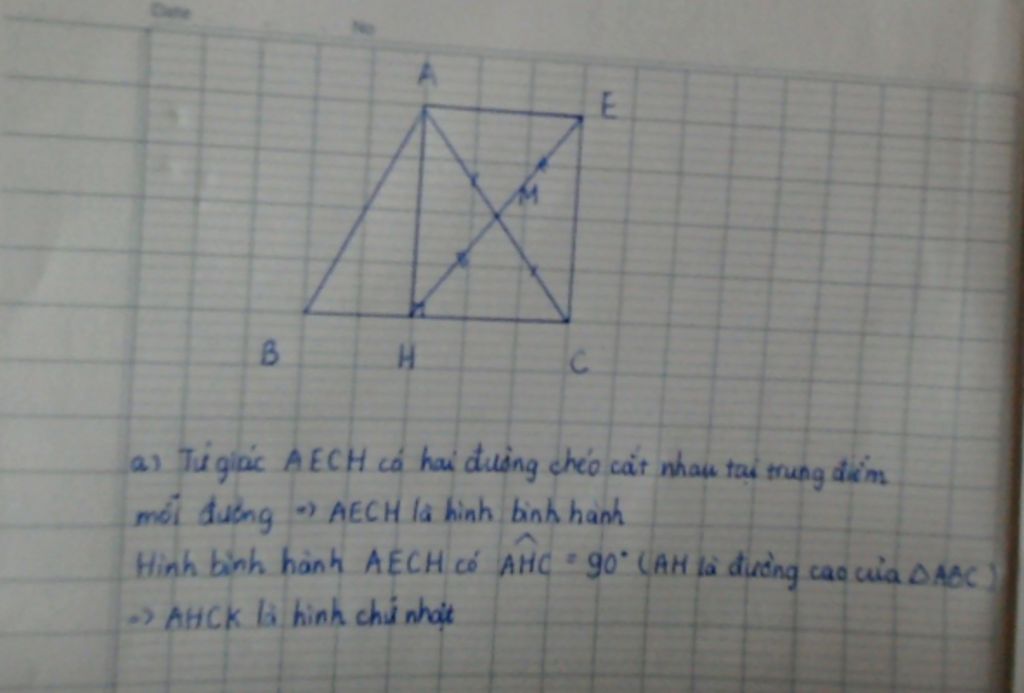 Date
No
A
E
M
B
H
C
a) Tứ giác AECH có hai đường chéo cắt nhau tại trung điểm
mỗi đường => AECH là hình bình hành
Hình bình hành AECH có AHC = 90° (AH là đường cao của △ABC)
=> AHCK là hình chữ nhật